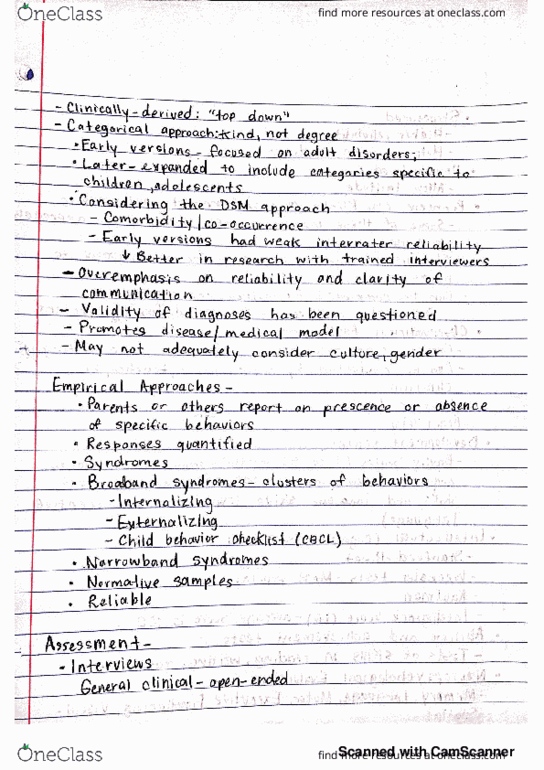 OneClass
find more resources at oneclass.com
- Clinically-derived: "top down"
- Categorical approach: kind, not degree
• Early versions - focused on adult disorders;
• Later - expanded to include categories specific to
children, adolescents
• Considering the DSM approach
- Comorbidity / co-occurrence
- Early versions had weak interrater reliability
↓ Better in research with trained interviewers
- Overemphasis on reliability and clarity of
communication
- Validity of diagnoses has been questioned
- Promotes disease/medical model
- May not adequately consider culture, gender
Empirical Approaches -
• Parents or others report on prescence or absence
of specific behaviors
• Responses quantified
• Syndromes
• Broadband syndromes - clusters of behaviors
- Internalizing
- Externalizing
- Child behavior checklist (CBCL)
• Narrowband syndromes
• Normative samples
• Reliable
Assessment -
- Interviews
General clinical - open-ended
OneClass
find more resources at oneclass.com
Scanned with CamScanner